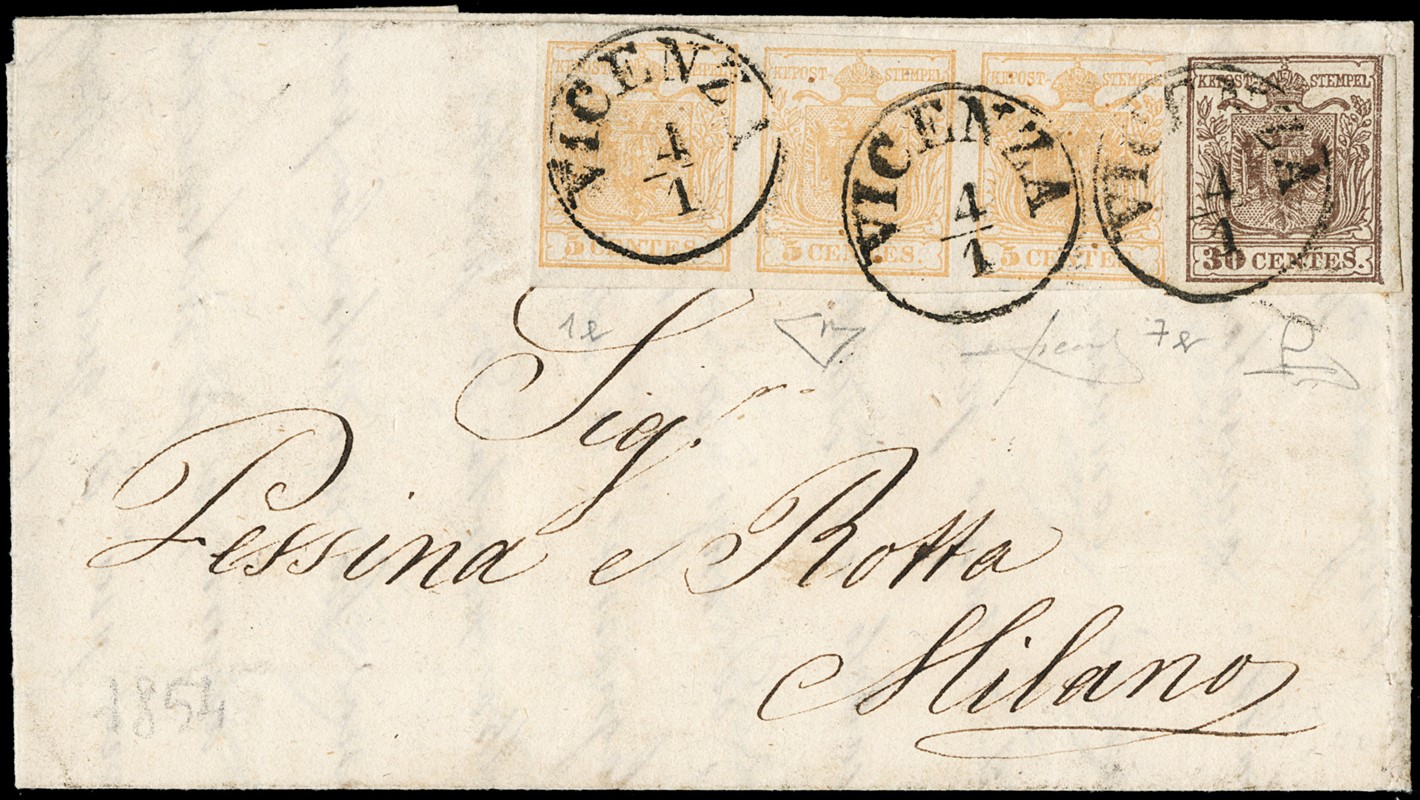 KKPOST-STEMPEL KKPOST-STEMPEL KKPOST-STEMPEL KKPOST-STEMPEL
5 CENTES. 5 CENTES. 5 CENTES. 30 CENTES.
VICENZA
4/1
VICENZA
4/1
VICENZA
4/1
Sig.ri
Pessina e Rotta
Milano
1854